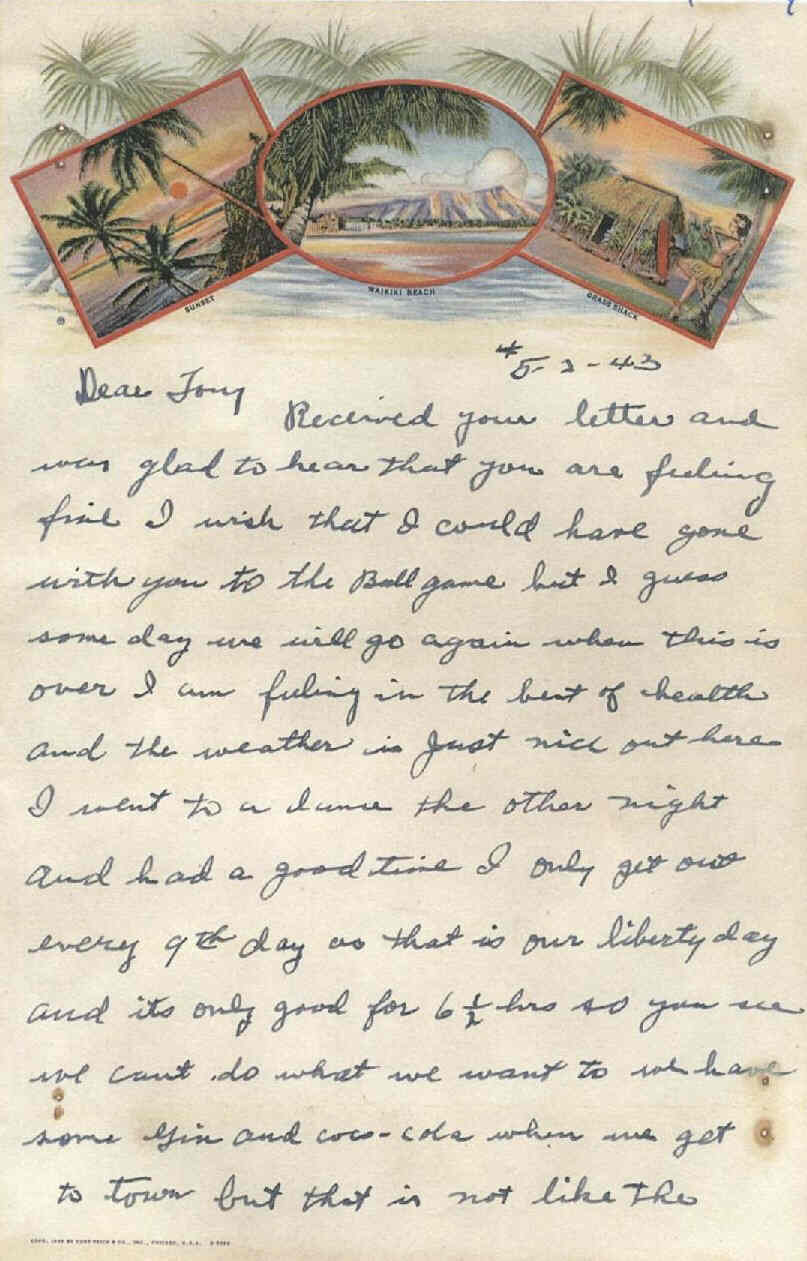 SUNSET
WAIKIKI BEACH
GRASS SHACK
5-2-43
Dear Tony
Received your letter and
was glad to hear that you are feeling
fine I wish that I could have gone
with you to the Ball game but I guess
some day we will go again when this is
over I am feeling in the best of health
and the weather is Just nice out here
I went to a dance the other night
and had a good time I only get out
every 9th day as that is our liberty day
and its only good for 6 1/2 hrs so you see
we cant do what we want to we have
some Gin and coco-cola when we get
to town but that is not like the